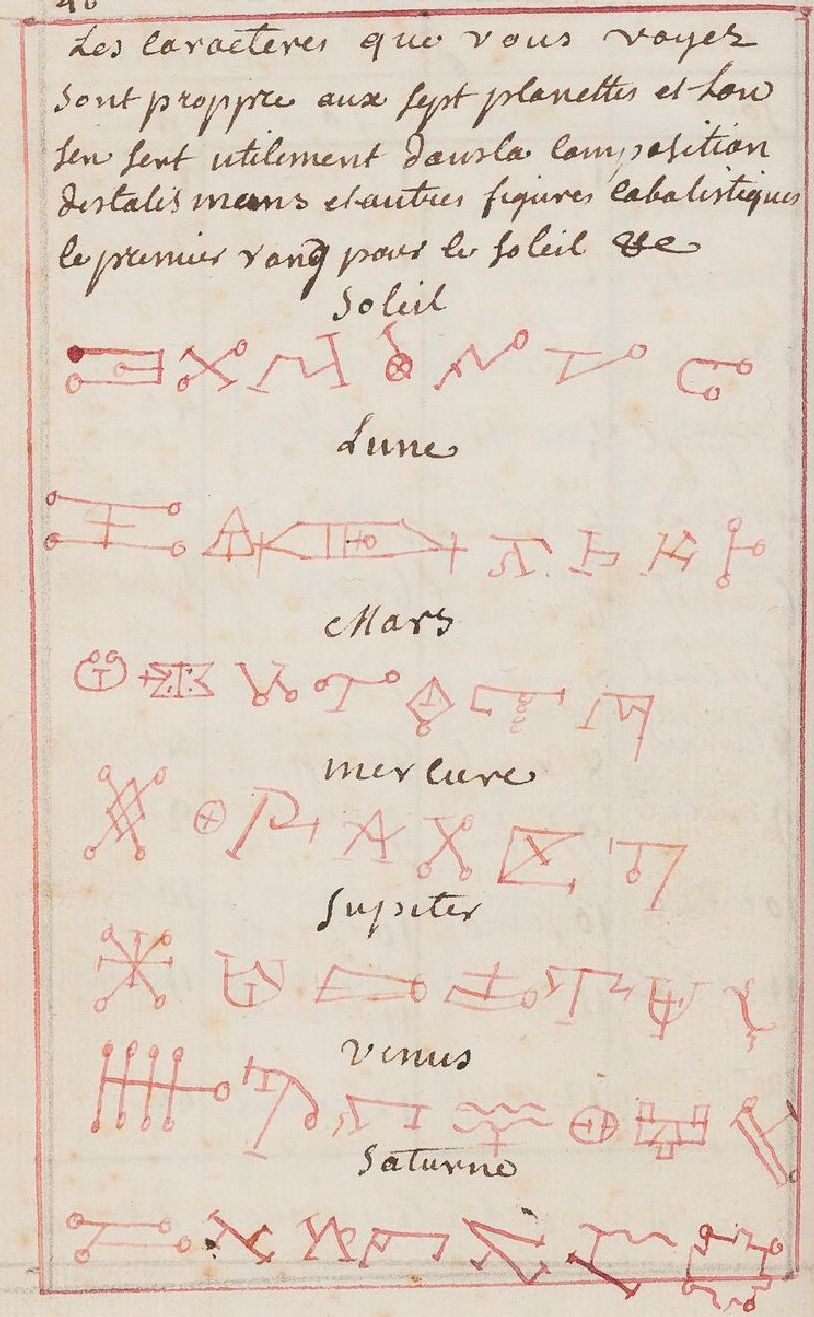 Les caracteres que vous voyez
sont proppre aux sept planettes et lon
sen sert utilement dans la composition
des talismans et autres figures cabalistiques
le premier rang pour le soleil &c
Soleil
Lune
Mars
mercure
Jupiter
Venus
Saturne